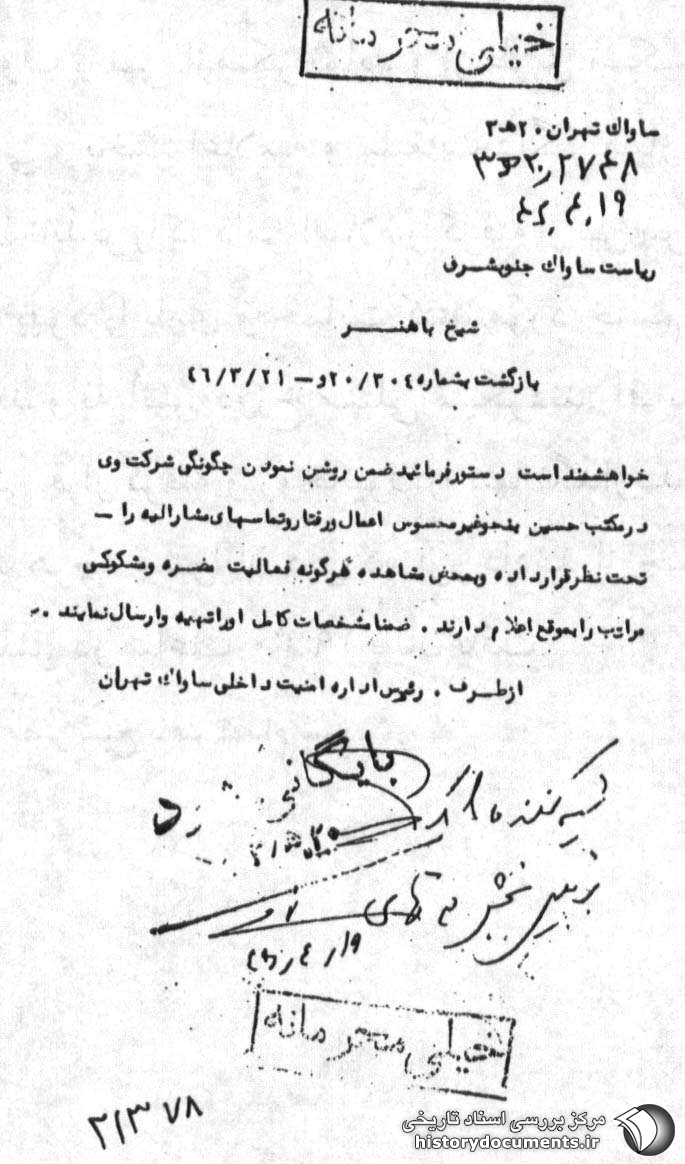 خیلی محرمانه
ساواك تهران ۲۰ ه‍ ۳
۲۷۴۸ / ۲۰ ه‍ ۳
۱۹ ، ۴ ، ۴۶
ریاست ساواك جنوبشرق
شیخ باهنــــر
بازگشت بشماره ۲۰/۳۰۴و – ۴۶/۳/۲۱
خواهشمند است دستور فرمائید ضمن روشن نمودن چگونگی شرکت وی
در مکتب حسین بنحو غیر محسوس اعمال و رفتار و تماسهای مشارالیه را –
تحت نظر قرار داده و بمحض مشاهده هرگونه فعالیت مضره و مشکوکی
مراتب را بموقع اعلام دارند . ضمنا مشخصات کامل او را تهیه و ارسال نمایند .
از طرف . رئیس اداره امنیت داخلی ساواك تهران
بایگانی شود
تهیه کننده
رئیس بخش
۱۹ ، ۴ ، ۴۶
خیلی محرمانه
۲۱۳۷۸
مرکز بررسی اسناد تاریخی
historydocuments.ir